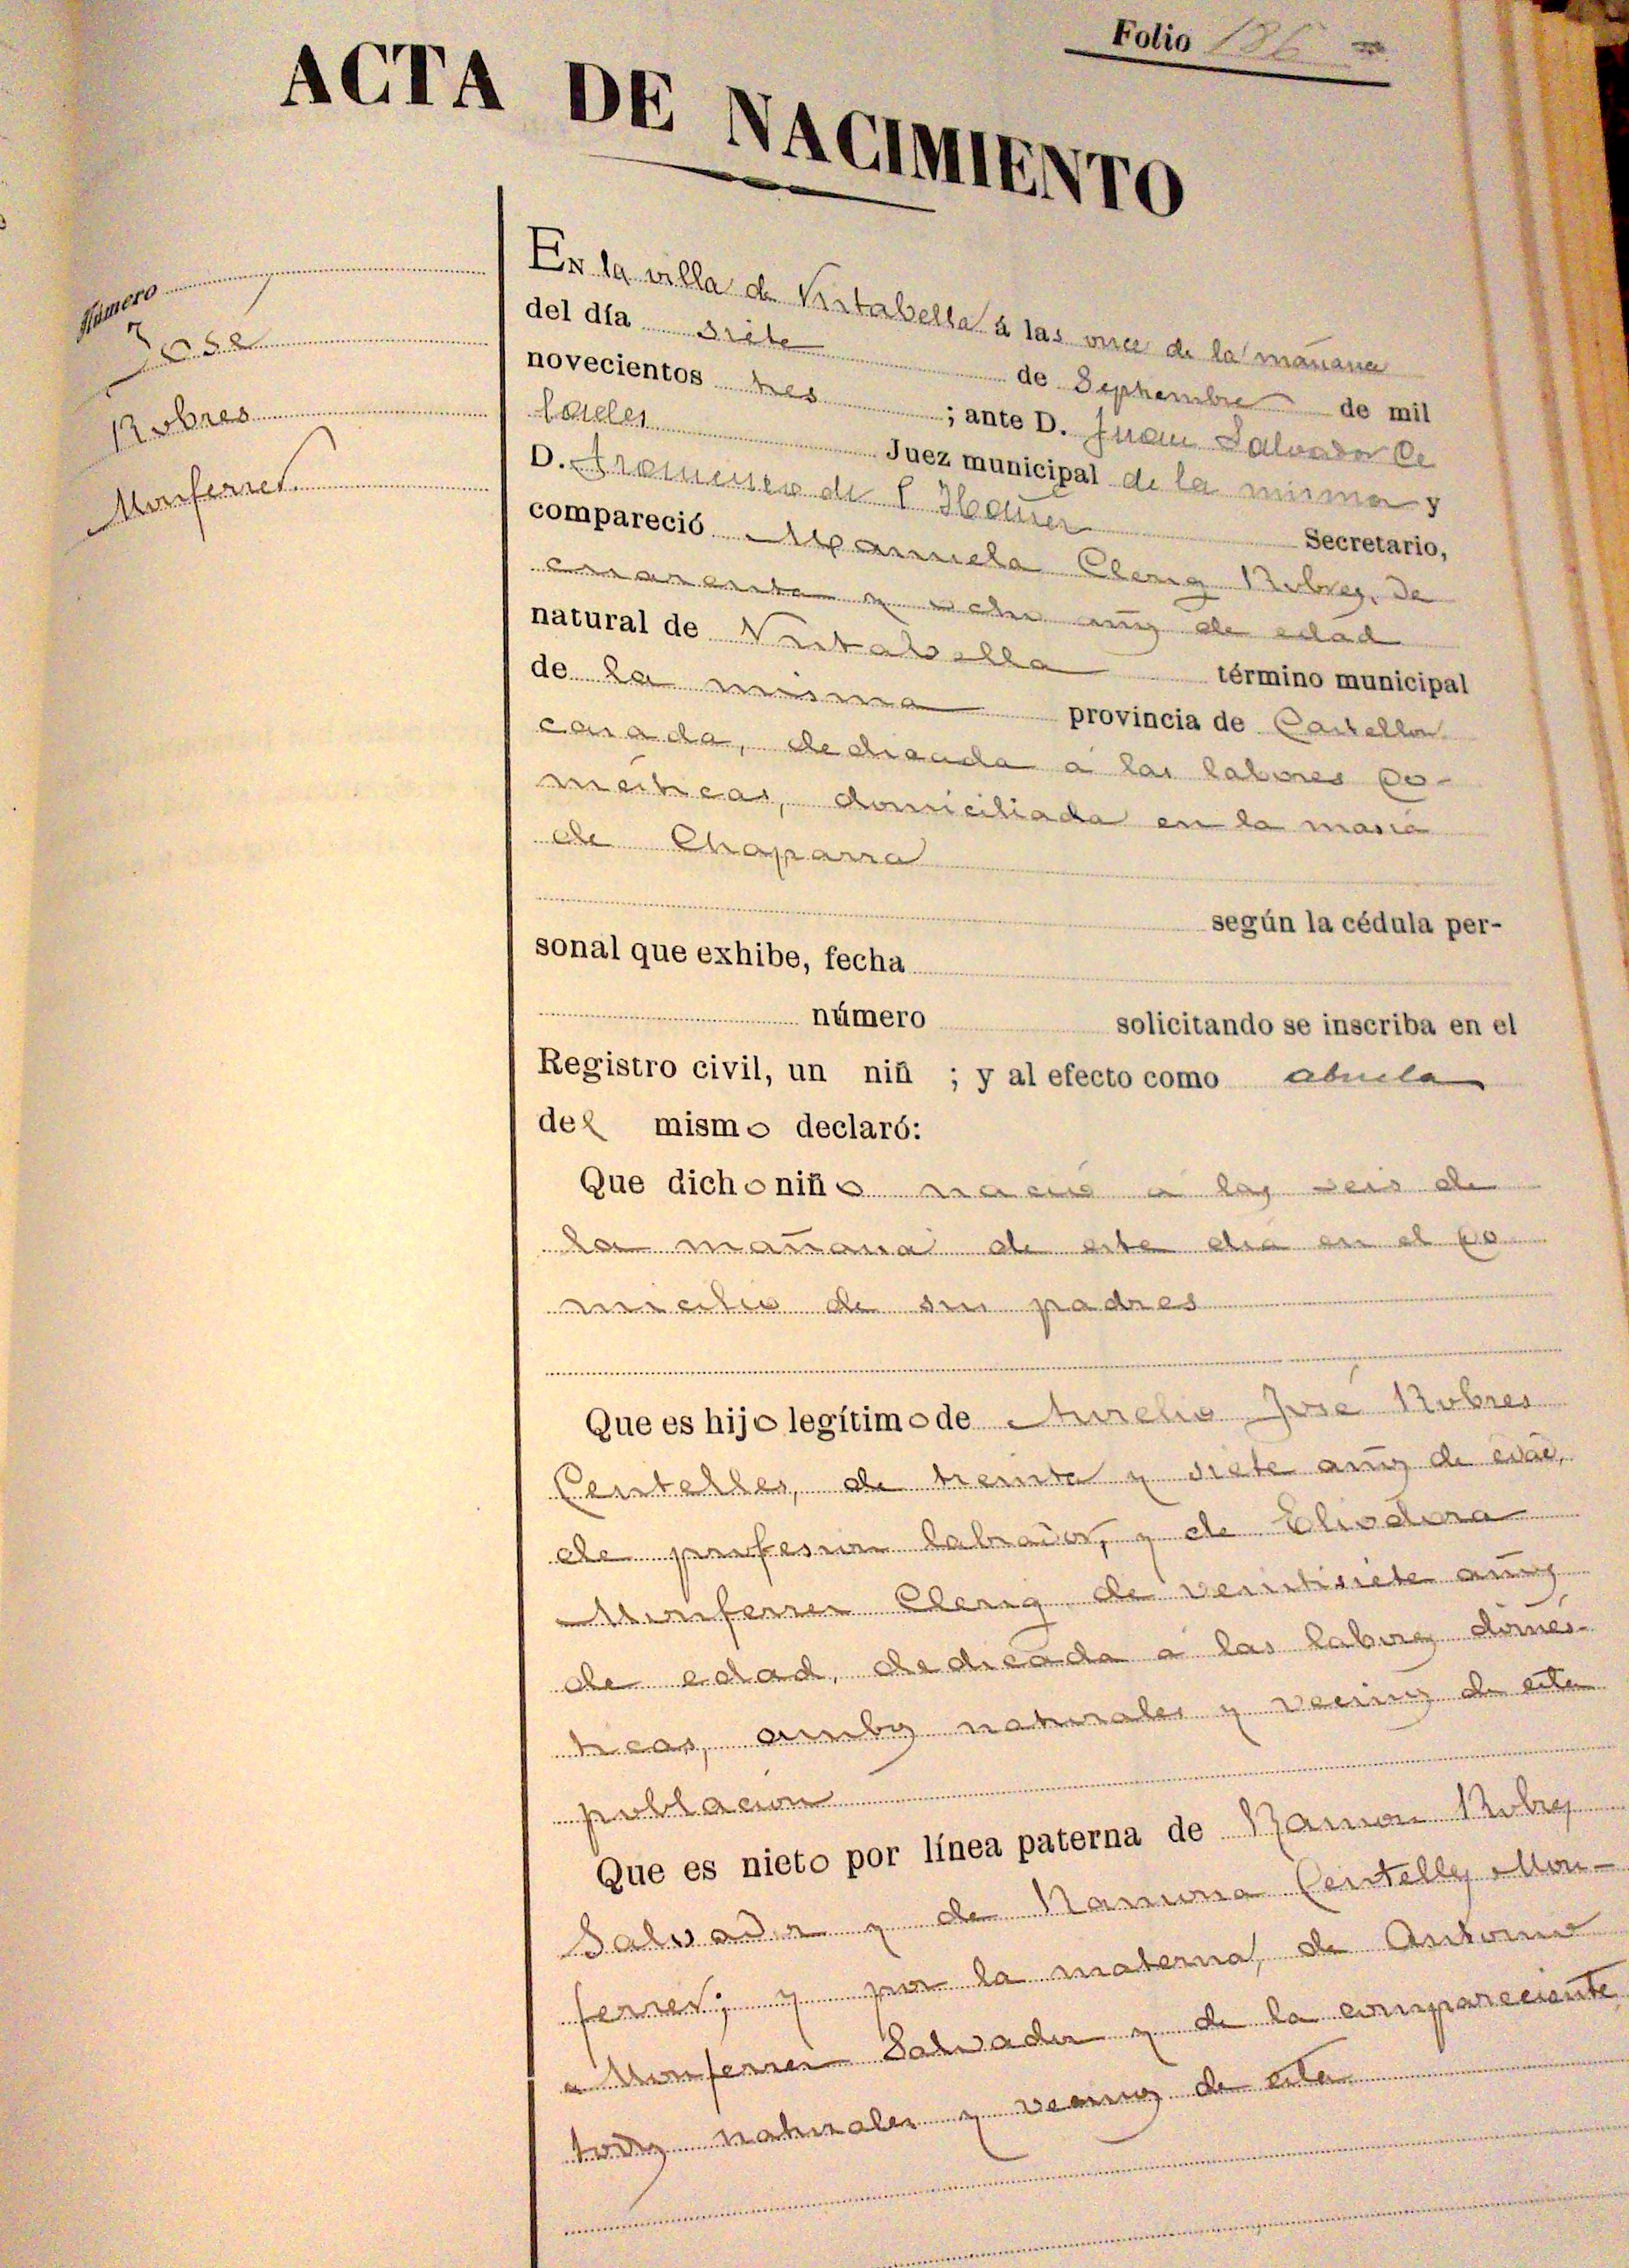 Folio 186
ACTA DE NACIMIENTO
Número
José
Robres
Monferrer
En la villa de Vistabella á las once de la mañana
del día siete de Septiembre de mil
novecientos tres ; ante D. Juan Salvador Ce
Juez municipal de la misma y
D. Francisco de P. Secretario,
compareció Manuela Clerig Robres, de
cuarenta y ocho años de edad
natural de Vistabella término municipal
de la misma provincia de Castellon
casada, dedicada á las labores do-
mésticas, domiciliada en la masia
de Chaparra
según la cédula per-
sonal que exhibe, fecha
número solicitando se inscriba en el
Registro civil, un niñ ; y al efecto como abuela
del mismo declaró:
Que dicho niño nació á las seis de
la mañana de este dia en el do
micilio de sus padres
Que es hijo legítimo de Aurelio José Robres
Centelles, de treinta y siete años de edad,
de profesion labrador, y de Eliodora
Monferrer Clerig de veintisiete años
de edad, dedicada á las labores domés-
ticas, ambos naturales y vecinos de esta
poblacion
Que es nieto por línea paterna de Ramon Robres
Salvador y de Ramona Centelles Mon-
ferrer; y por la materna, de Antonio
Monferrer Salvador y de la compareciente
todos naturales y vecinos de esta